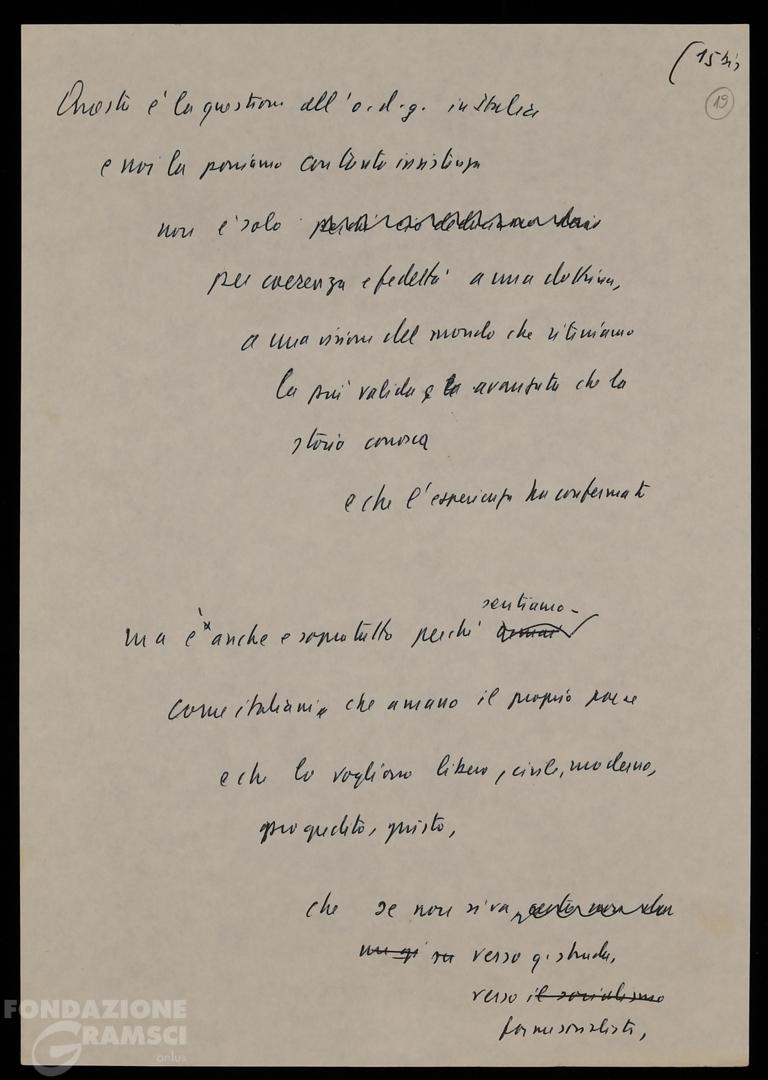 (15 bis
19
Questa è la questione all'o.d.g. in Italia
e noi la poniamo con tanta insistenza
non è solo
per coerenza e fedeltà a una dottrina,
a una visione del mondo che riteniamo
la più valida e la avanzata che la
storia conosca
e che l'esperienza ha confermato
sentiamo
ma è anche e sopratutto perché
come italiani che amano il proprio paese
e che lo vogliono libero, civile, moderno,
progredito, giusto,
che se non si va
su verso q. strada,
verso il socialismo
forme socialiste,
FONDAZIONE
GRAMSCI
onlus